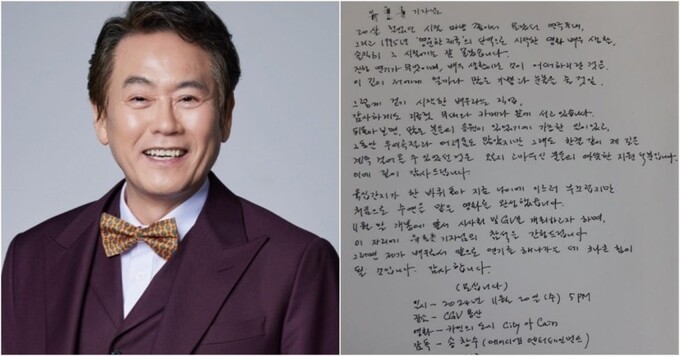 기자님
20살
그리고 1995년 '영원한 제국'의 단역으로 시작한 영화 배우 생활,
솔직히 그 시절에는 잘 몰랐습니다.
진정 연기가 무엇이며, 배우 생활이란 것이 어떠하리란 것을.
이 길이 저에게 얼마나 많은 눈물을 줄 것인
그렇게 길이 시작한 배우라는 직업,
감사하게도 지금껏 무대와 카메라 앞에 서고 있습니다.
뒤돌아보면, 많은 분들의 응원이 있었기에 가능한 일이었고,
그동안 우여곡절과 어려움도 많았지만 그래도 한결 같이 제 길은
계속 걸어올 수 있었던 것은 고마우신 분들의 따뜻한 지원 덕분입니다.
이에 깊이 감사드립니다.
육십갑자가 한 바퀴 지금 나이에 이르러 부끄럽지만
처음으로 주연을 맡은 영화를 완성했습니다.
11월 말 개봉에 앞서 시사회 및 GV를 개최하고자 하며,
이 자리에 기자님의 참석을 간청드립니다.
그래면 제가 배우로서 앞으로 연기를 해나가는 데 크나큰 힘이
될 것입니다. 감사합니다.
(모십니다)
일시 - 2024년 11월 20일 (수) 5PM
장소 - CGV 용산
영화 - 카인의 도시 City of Cain
감독 - 송창수